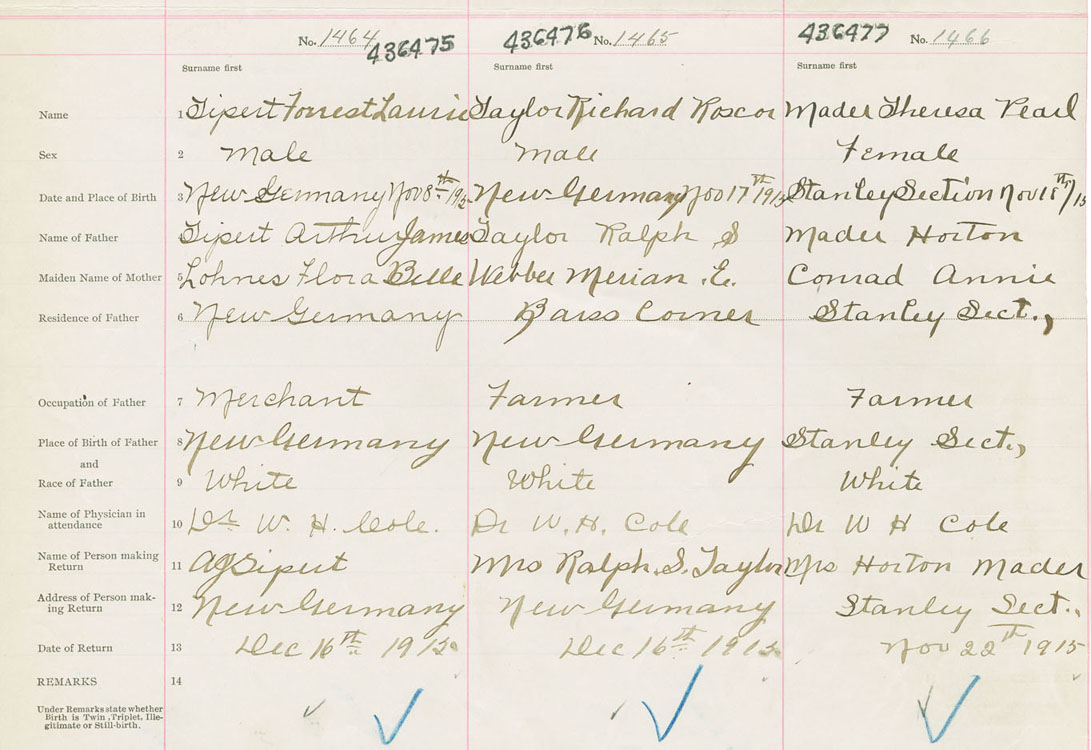 No. 1464 436475 436476 No. 1465 436477 No. 1466
Surname first Surname first Surname first
Name 1 Sipert Forrest Laurie Taylor Richard Roscor Mader Theresa Pearl
Sex 2 Male Male Female
Date and Place of Birth 3 New Germany Nov 8th 1915 New Germany Nov 17th 1915 Stanley Section Nov 18th/15
Name of Father 4 Sipert Arthur James Taylor Ralph S Mader Horton
Maiden Name of Mother 5 Lohnes Flora Belle Webber Merian .E. Conrad Annie
Residence of Father 6 New Germany Barss Corner Stanley Sect.,
Occupation of Father 7 Merchant Farmer Farmer
Place of Birth of Father 8 New Germany New Germany Stanley Sect.,
and
Race of Father 9 White White White
Name of Physician in
attendance 10 Dr. W. H. Cole. Dr W. H. Cole Dr W H Cole
Name of Person making
Return 11 AJ Sipert Mrs Ralph S. Taylor Mrs Horton Mader
Address of Person mak-
ing Return 12 New Germany New Germany Stanley Sect.,
Date of Return 13 Dec 16th 1915 Dec 16th 1915 Nov 22th 1915
REMARKS 14
Under Remarks state whether
Birth is Twin, Triplet, Ille-
gitimate or Still-birth.